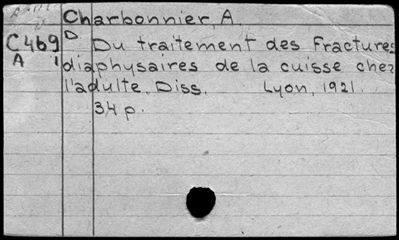 Charbonnier, A.
C469 D Du traitement des Fractures
A 1 diaphysaires de la cuisse chez
l'adulte. Diss. Lyon, 1921.
34 p.